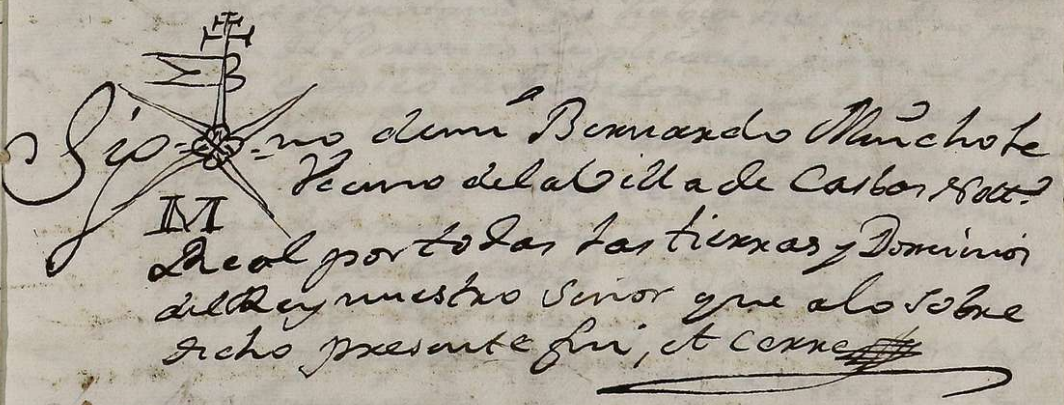 Sig-no de mi Bernardo Muñchole
Vecino de la Villa de Casbas Nott.º
Real por todas las tierras y Dominios
del Rey nuestro Señor que a lo sobre
dicho presente fui, et cerre
B
M